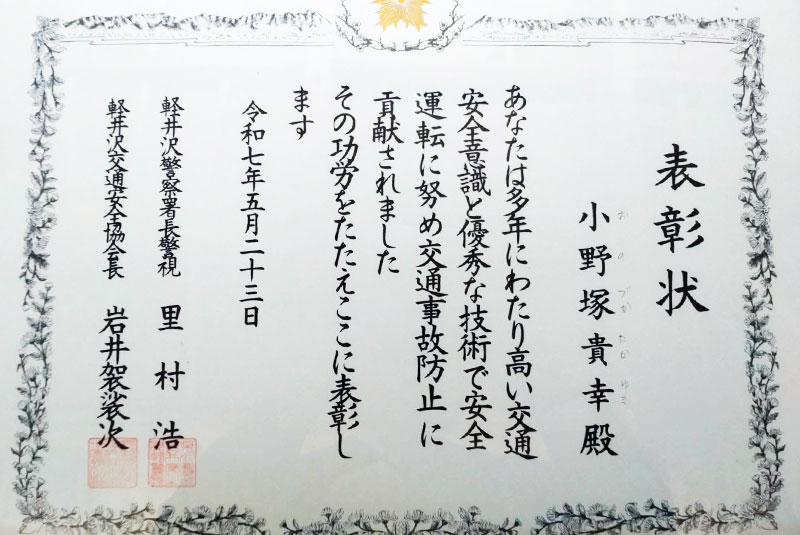 表彰状
小野塚貴幸殿
おのづかたかゆき
あなたは多年にわたり高い交通
安全意識と優秀な技術で安全
運転に努め交通事故防止に
貢献されました
その功労をたたえここに表彰し
ます
令和七年五月二十三日
軽井沢警察署長警視 里村浩
軽井沢交通安全協会長 岩井袈裟次